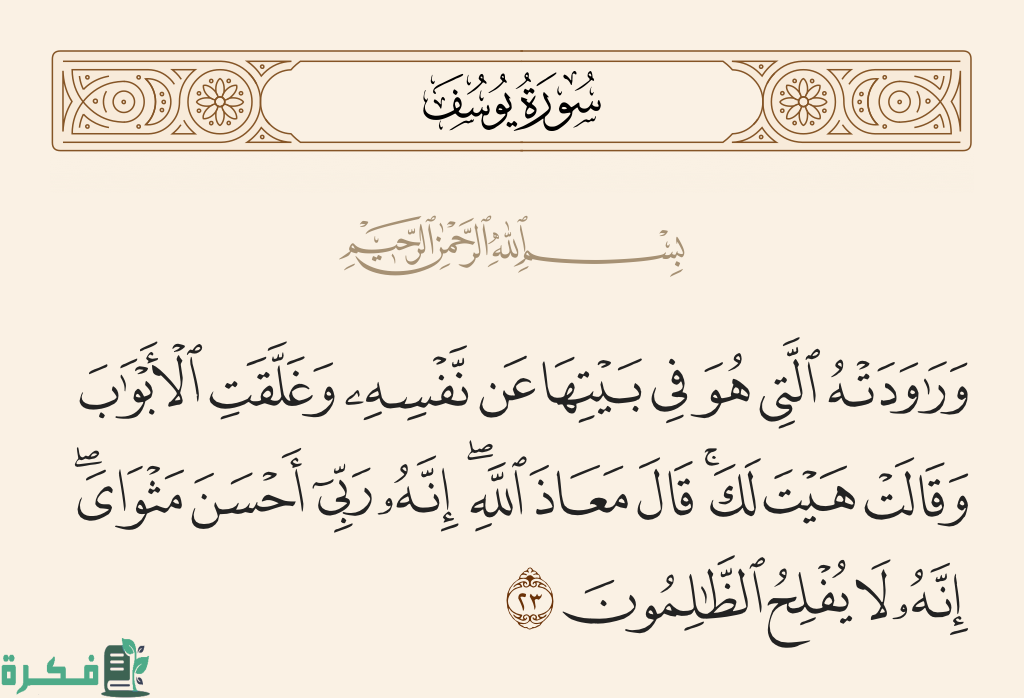 سُورَةُ يُوسُفَ
بِسْمِ ٱللَّهِ ٱلرَّحْمَٰنِ ٱلرَّحِيمِ
وَرَٰوَدَتْهُ ٱلَّتِى هُوَ فِى بَيْتِهَا عَن نَّفْسِهِۦ وَغَلَّقَتِ ٱلْأَبْوَٰبَ
وَقَالَتْ هَيْتَ لَكَ ۚ قَالَ مَعَاذَ ٱللَّهِ ۖ إِنَّهُۥ رَبِّىٓ أَحْسَنَ مَثْوَاىَ ۖ
إِنَّهُۥ لَا يُفْلِحُ ٱلظَّٰلِمُونَ ٢٣
فكرة